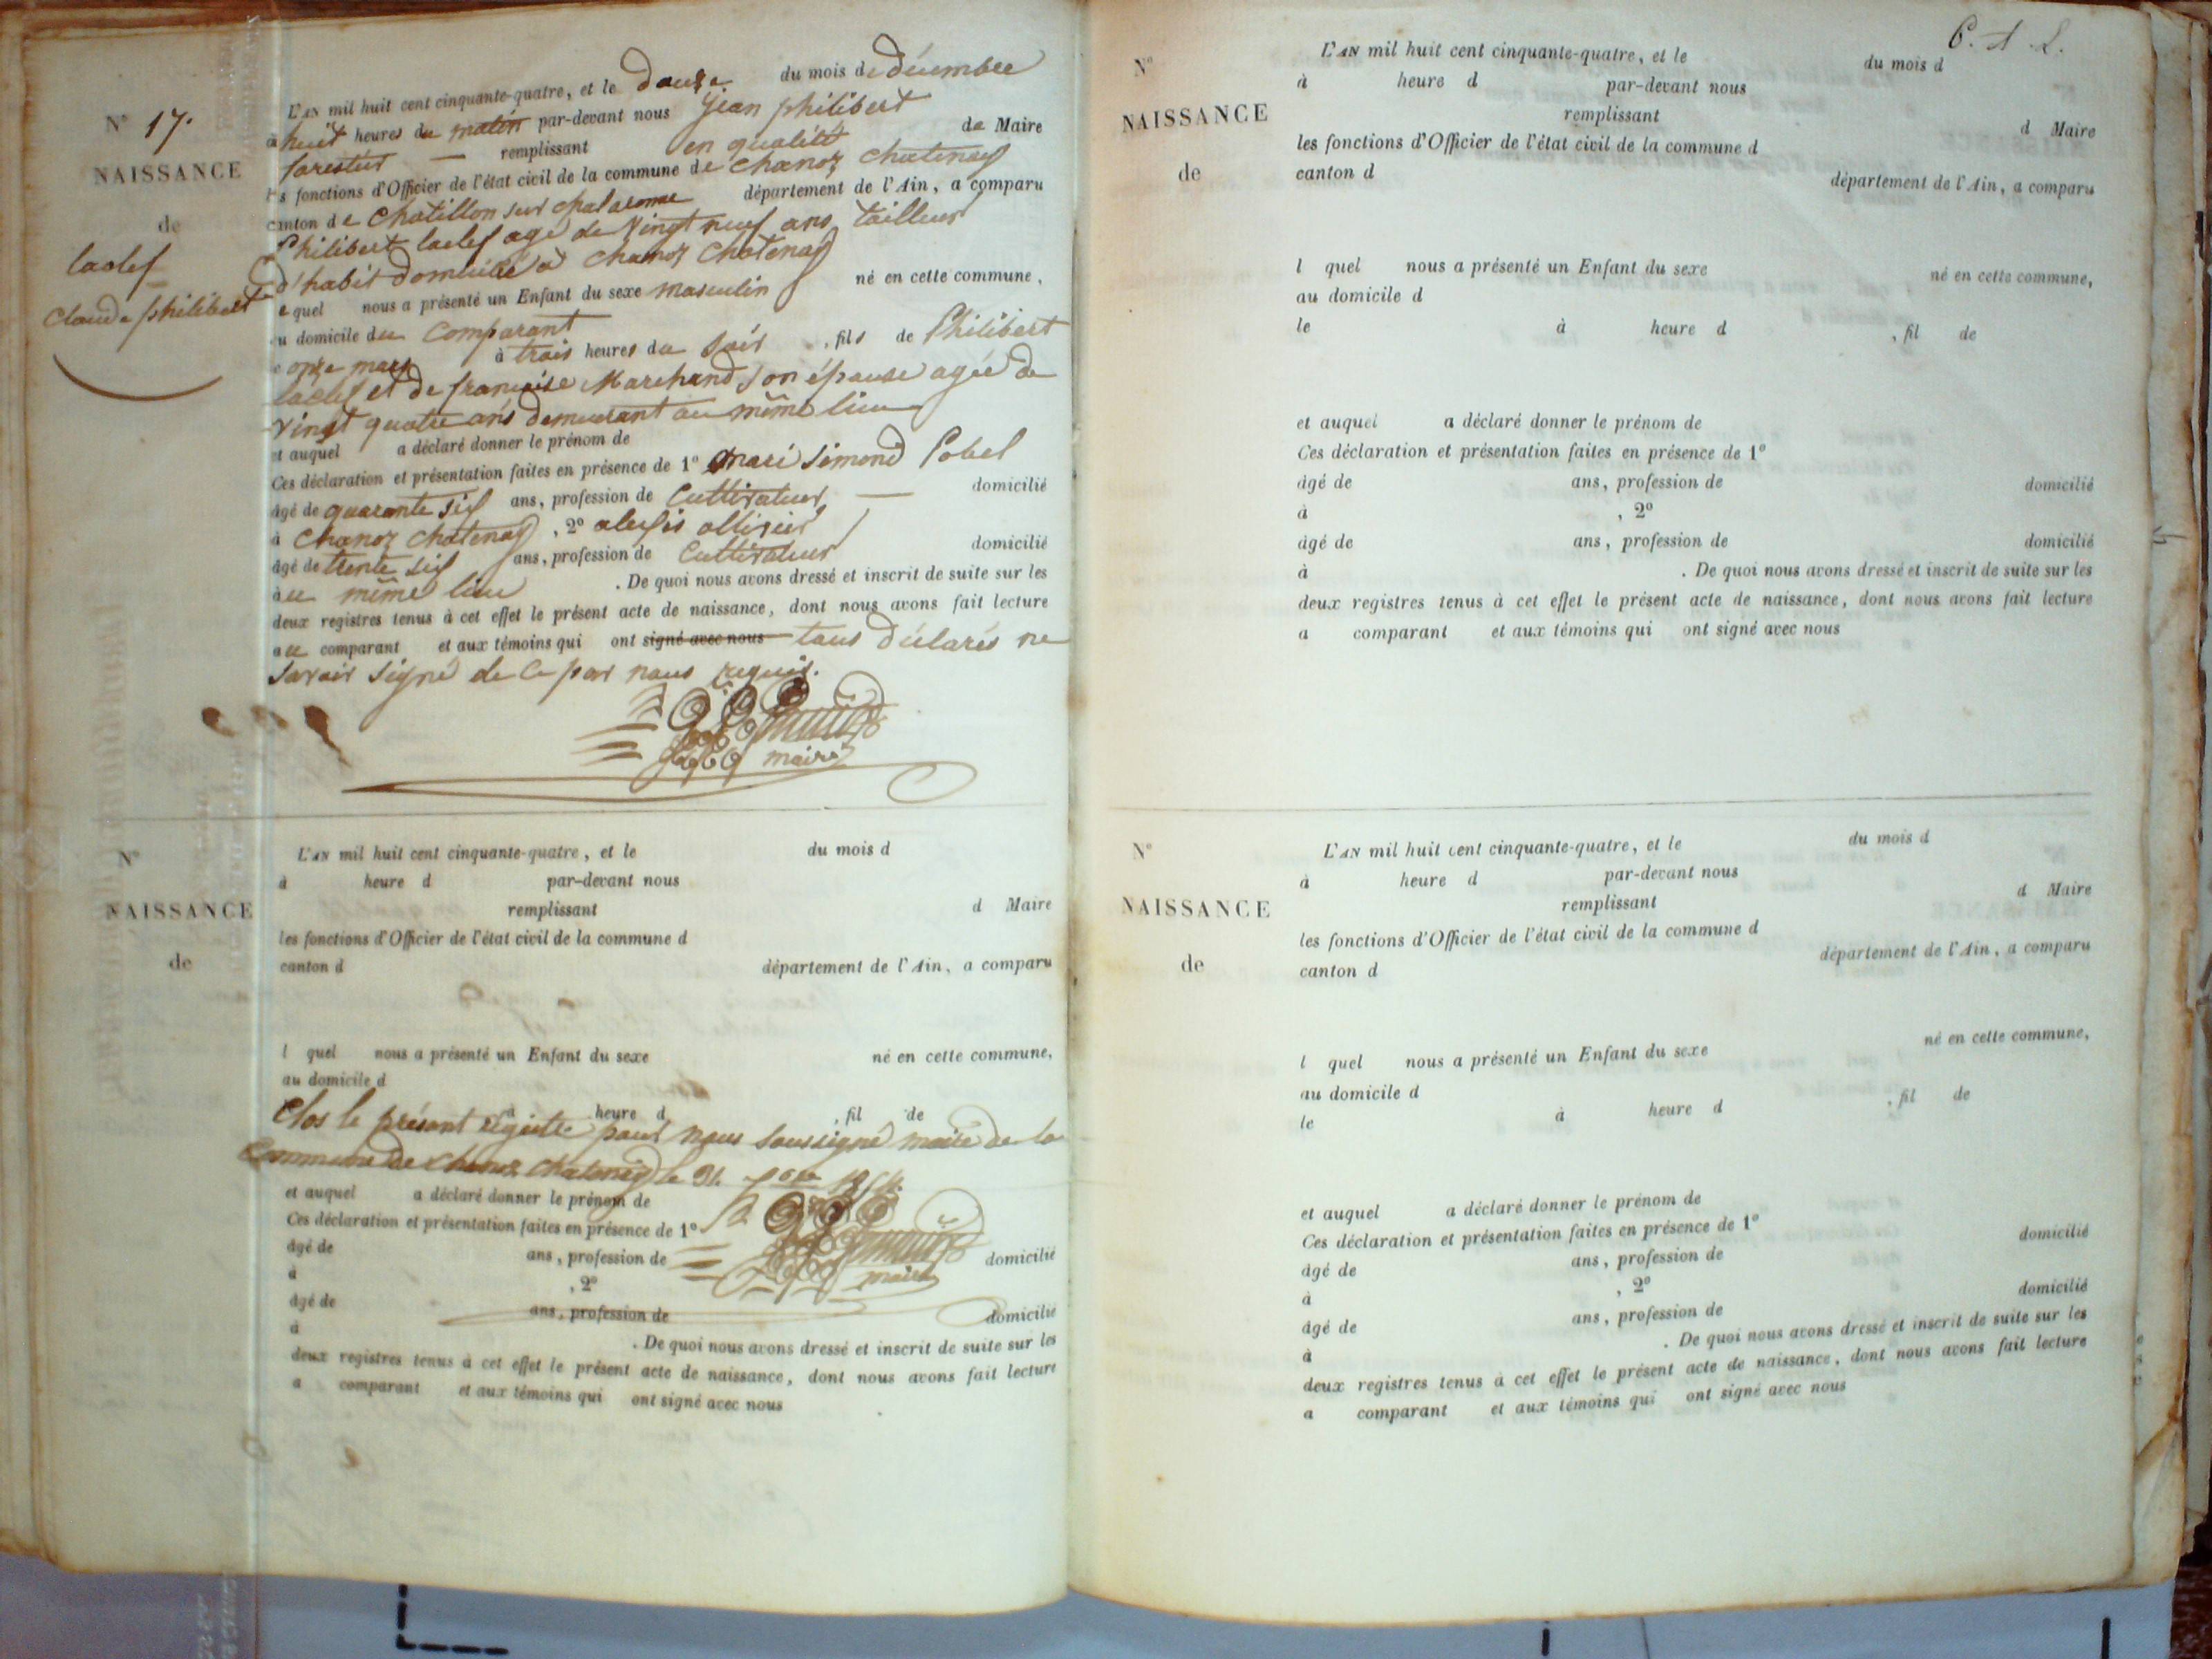 N° 17.
NAISSANCE
de
laclef
Claude philibert
L'AN mil huit cent cinquante-quatre, et le douze du mois de décembre
à huit heures du matin par-devant nous Jean philibert
forestier — remplissant en qualité de Maire
les fonctions d'Officier de l'état civil de la commune de Chanoz Chatenay
canton de Chatillon sur chalaronne département de l'Ain, a comparu
Philibert laclef agé de Vingt neuf ans tailleur
d'habit domicilié à Chanoz Chatenay
lequel nous a présenté un Enfant du sexe masculin né en cette commune,
au domicile du Comparant
le onze mars à trois heures du soir , fils de Philibert
laclef et de françoise Marchand son épouse agée de
vingt quatre ans demeurant au même lieu
et auquel a déclaré donner le prénom de
Ces déclaration et présentation faites en présence de 1° Mari Simond Pobel
âgé de quarante six ans, profession de Cultivateur — domicilié
à Chanoz Chatenay , 2° alexis ollivier
âgé de trente six ans, profession de Cultivateur domicilié
au même lieu . De quoi nous avons dressé et inscrit de suite sur les
deux registres tenus à cet effet le présent acte de naissance, dont nous avons fait lecture
au comparant et aux témoins qui ont signé avec nous tous déclarés ne
savoir signé de ce par nous requis.
maire
N°
NAISSANCE
de
L'AN mil huit cent cinquante-quatre, et le du mois d
à heure d par-devant nous
remplissant d Maire
les fonctions d'Officier de l'état civil de la commune d
canton d département de l'Ain, a comparu
l quel nous a présenté un Enfant du sexe né en cette commune,
au domicile d
à heure d , fil de
Clos le présent régistre pour nous soussigné maire de la
Commune de Chanoz Chatenay le 31 1854.
et auquel a déclaré donner le prénom de
Ces déclaration et présentation faites en présence de 1°
âgé de ans, profession de domicilié
à , 2°
maire
âgé de ans, profession de domicilié
à . De quoi nous avons dressé et inscrit de suite sur les
deux registres tenus à cet effet le présent acte de naissance, dont nous avons fait lecture
a comparant et aux témoins qui ont signé avec nous
6. 1. 2.
N°
NAISSANCE
de
L'AN mil huit cent cinquante-quatre, et le du mois d
à heure d par-devant nous
remplissant d Maire
les fonctions d'Officier de l'état civil de la commune d
canton d département de l'Ain, a comparu
l quel nous a présenté un Enfant du sexe né en cette commune,
au domicile d
le à heure d , fil de
et auquel a déclaré donner le prénom de
Ces déclaration et présentation faites en présence de 1°
âgé de ans, profession de domicilié
à , 2°
âgé de ans, profession de domicilié
à . De quoi nous avons dressé et inscrit de suite sur les
deux registres tenus à cet effet le présent acte de naissance, dont nous avons fait lecture
a comparant et aux témoins qui ont signé avec nous
N°
NAISSANCE
de
L'AN mil huit cent cinquante-quatre, et le du mois d
à heure d par-devant nous
remplissant d Maire
les fonctions d'Officier de l'état civil de la commune d
canton d département de l'Ain, a comparu
l quel nous a présenté un Enfant du sexe né en cette commune,
au domicile d
le à heure d , fil de
et auquel a déclaré donner le prénom de
Ces déclaration et présentation faites en présence de 1°
âgé de ans, profession de domicilié
à , 2°
âgé de ans, profession de domicilié
à . De quoi nous avons dressé et inscrit de suite sur les
deux registres tenus à cet effet le présent acte de naissance, dont nous avons fait lecture
a comparant et aux témoins qui ont signé avec nous